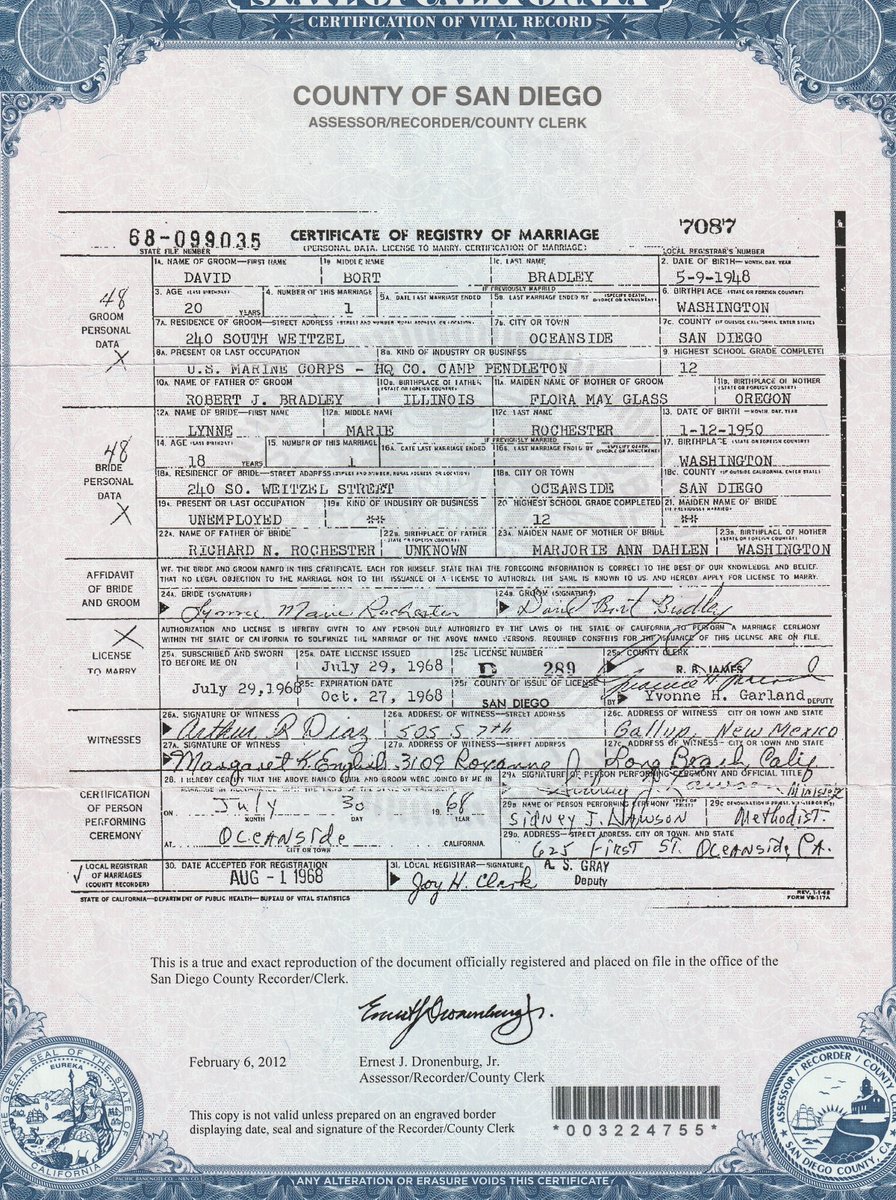 STATE OF CALIFORNIA
CERTIFICATION OF VITAL RECORD
COUNTY OF SAN DIEGO
ASSESSOR/RECORDER/COUNTY CLERK
68-099035 CERTIFICATE OF REGISTRY OF MARRIAGE 7087
STATE FILE NUMBER (PERSONAL DATA, LICENSE TO MARRY, CERTIFICATION OF MARRIAGE) LOCAL REGISTRAR'S NUMBER
48
GROOM PERSONAL DATA
X
1A. NAME OF GROOM—FIRST NAME 1B. MIDDLE NAME 1C. LAST NAME 2. DATE OF BIRTH—MONTH, DAY, YEAR
DAVID BORT BRADLEY 5-9-1948
3. AGE (LAST BIRTHDAY) 4. NUMBER OF THIS MARRIAGE IF PREVIOUSLY MARRIED 5A. DATE LAST MARRIAGE ENDED 5B. LAST MARRIAGE ENDED BY (SPECIFY DEATH, DIVORCE OR ANNULMENT) 6. BIRTHPLACE (STATE OR FOREIGN COUNTRY)
20 YEARS 1 WASHINGTON
7A. RESIDENCE OF GROOM—STREET ADDRESS (STREET AND NUMBER, RURAL ADDRESS OR LOCATION) 7B. CITY OR TOWN 7C. COUNTY (IF OUTSIDE CALIFORNIA, ENTER STATE)
240 SOUTH WEITZEL OCEANSIDE SAN DIEGO
8A. PRESENT OR LAST OCCUPATION 8B. KIND OF INDUSTRY OR BUSINESS 9. HIGHEST SCHOOL GRADE COMPLETED
U.S. MARINE CORPS - HQ CO. CAMP PENDLETON 12
10A. NAME OF FATHER OF GROOM 10B. BIRTHPLACE OF FATHER (STATE OR FOREIGN COUNTRY) 11A. MAIDEN NAME OF MOTHER OF GROOM 11B. BIRTHPLACE OF MOTHER
ROBERT J. BRADLEY ILLINOIS FLORA MAY GLASS OREGON
48
BRIDE PERSONAL DATA
X
12A. NAME OF BRIDE—FIRST NAME 12B. MIDDLE NAME 12C. LAST NAME 13. DATE OF BIRTH—MONTH, DAY, YEAR
LYNNE MARIE ROCHESTER 1-12-1950
14. AGE (LAST BIRTHDAY) 15. NUMBER OF THIS MARRIAGE IF PREVIOUSLY MARRIED 16A. DATE LAST MARRIAGE ENDED 16B. LAST MARRIAGE ENDED BY (SPECIFY DEATH, DIVORCE OR ANNULMENT) 17. BIRTHPLACE (STATE OR FOREIGN COUNTRY)
18 YEARS 1 WASHINGTON
18A. RESIDENCE OF BRIDE—STREET ADDRESS (STREET AND NUMBER, RURAL ADDRESS OR LOCATION) 18B. CITY OR TOWN 18C. COUNTY (IF OUTSIDE CALIFORNIA, ENTER STATE)
240 SO. WEITZEL STREET OCEANSIDE SAN DIEGO
19A. PRESENT OR LAST OCCUPATION 19B. KIND OF INDUSTRY OR BUSINESS 20. HIGHEST SCHOOL GRADE COMPLETED 21. MAIDEN NAME OF BRIDE (IF PREVIOUSLY MARRIED)
UNEMPLOYED ** 12 **
22A. NAME OF FATHER OF BRIDE 22B. BIRTHPLACE OF FATHER (STATE OR FOREIGN COUNTRY) 23A. MAIDEN NAME OF MOTHER OF BRIDE 23B. BIRTHPLACE OF MOTHER (STATE OR FOREIGN COUNTRY)
RICHARD N. ROCHESTER UNKNOWN MARJORIE ANN DAHLEN WASHINGTON
AFFIDAVIT OF BRIDE AND GROOM
WE, THE BRIDE AND GROOM NAMED IN THIS CERTIFICATE, EACH FOR HIMSELF, STATE THAT THE FOREGOING INFORMATION IS CORRECT TO THE BEST OF OUR KNOWLEDGE AND BELIEF,
THAT NO LEGAL OBJECTION TO THE MARRIAGE NOR TO THE ISSUANCE OF A LICENSE TO AUTHORIZE THE SAME IS KNOWN TO US AND HEREBY APPLY FOR LICENSE TO MARRY.
24A. BRIDE (SIGNATURE) 24B. GROOM (SIGNATURE)
Lynne Marie Rochester David Bort Bradley
X
LICENSE TO MARRY
AUTHORIZATION AND LICENSE IS HEREBY GIVEN TO ANY PERSON DULY AUTHORIZED BY THE LAWS OF THE STATE OF CALIFORNIA TO PERFORM A MARRIAGE CEREMONY
WITHIN THE STATE OF CALIFORNIA TO SOLEMNIZE THE MARRIAGE OF THE ABOVE NAMED PERSONS. REQUIRED CONSENTS FOR THE ISSUANCE OF THIS LICENSE ARE ON FILE.
25A. SUBSCRIBED AND SWORN TO BEFORE ME ON 25B. DATE LICENSE ISSUED 25C. LICENSE NUMBER COUNTY CLERK
July 29, 1968 July 29, 1968 D 289 R. B. JAMES
EXPIRATION DATE COUNTY OF ISSUE OF LICENSE
Oct. 27, 1968 SAN DIEGO BY Yvonne H. Garland DEPUTY
WITNESSES
26A. SIGNATURE OF WITNESS 26B. ADDRESS OF WITNESS—STREET ADDRESS 26C. CITY OR TOWN AND STATE
Arthur R Diaz 505 S 7th Gallup, New Mexico
27A. SIGNATURE OF WITNESS 27B. ADDRESS OF WITNESS—STREET ADDRESS 27C. ADDRESS OF WITNESS—CITY OR TOWN AND STATE
Margaret K. English 3109 Roxanne Long Beach, Calif
CERTIFICATION OF PERSON PERFORMING CEREMONY
28. I HEREBY CERTIFY THAT THE ABOVE NAMED BRIDE AND GROOM WERE JOINED BY ME IN
ON July 30 1968
MONTH DAY YEAR
AT Oceanside CALIFORNIA
CITY OR TOWN
29A. SIGNATURE OF PERSON PERFORMING CEREMONY AND OFFICIAL TITLE
Sidney J. Lawson Minister
29B. NAME OF PERSON PERFORMING CEREMONY (TYPE OR PRINT) 29C. DENOMINATION
SIDNEY J. LAWSON Methodist
29D. ADDRESS—STREET ADDRESS, CITY OR TOWN, AND STATE
625 First St. Oceanside, CA.
LOCAL REGISTRAR OF MARRIAGES (COUNTY RECORDER)
30. DATE ACCEPTED FOR REGISTRATION 31. LOCAL REGISTRAR—SIGNATURE A. S. GRAY
AUG - 1 1968 Joy H. Clark Deputy
STATE OF CALIFORNIA—DEPARTMENT OF PUBLIC HEALTH—BUREAU OF VITAL STATISTICS
REV. 1-1-68
FORM VS-117A
This is a true and exact reproduction of the document officially registered and placed on file in the office of the
San Diego County Recorder/Clerk.
Ernest J Dronenburg, Jr.
February 6, 2012 Ernest J. Dronenburg, Jr.
Assessor/Recorder/County Clerk
This copy is not valid unless prepared on an engraved border
displaying date, seal and signature of the Recorder/County Clerk
*003224755*
THE GREAT SEAL OF THE STATE OF CALIFORNIA
EUREKA
ASSESSOR / RECORDER / COUNTY CLERK
SAN DIEGO COUNTY, CA
ANY ALTERATION OR ERASURE VOIDS THIS CERTIFICATE